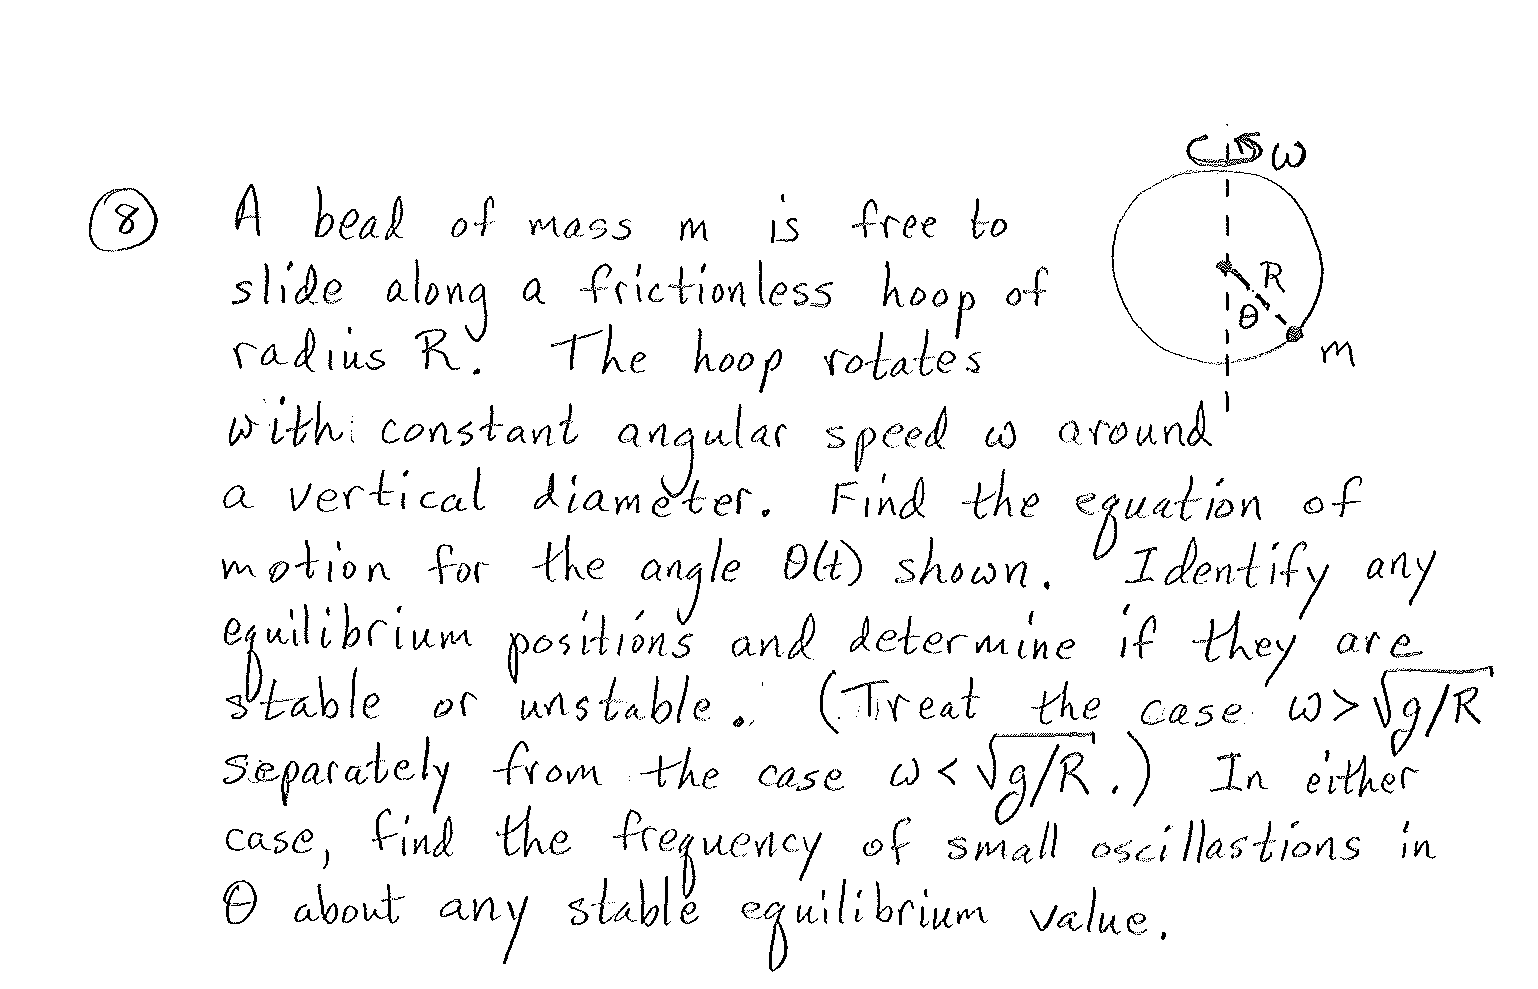 ω
⑧ A bead of mass m is free to
slide along a frictionless hoop of
radius R. The hoop rotates
R
θ
m
with constant angular speed ω around
a vertical diameter. Find the equation of
motion for the angle θ(t) shown. Identify any
equilibrium positions and determine if they are
stable or unstable. (Treat the case ω > √g/R
separately from the case ω < √g/R.) In either
case, find the frequency of small oscillastions in
θ about any stable equilibrium value.